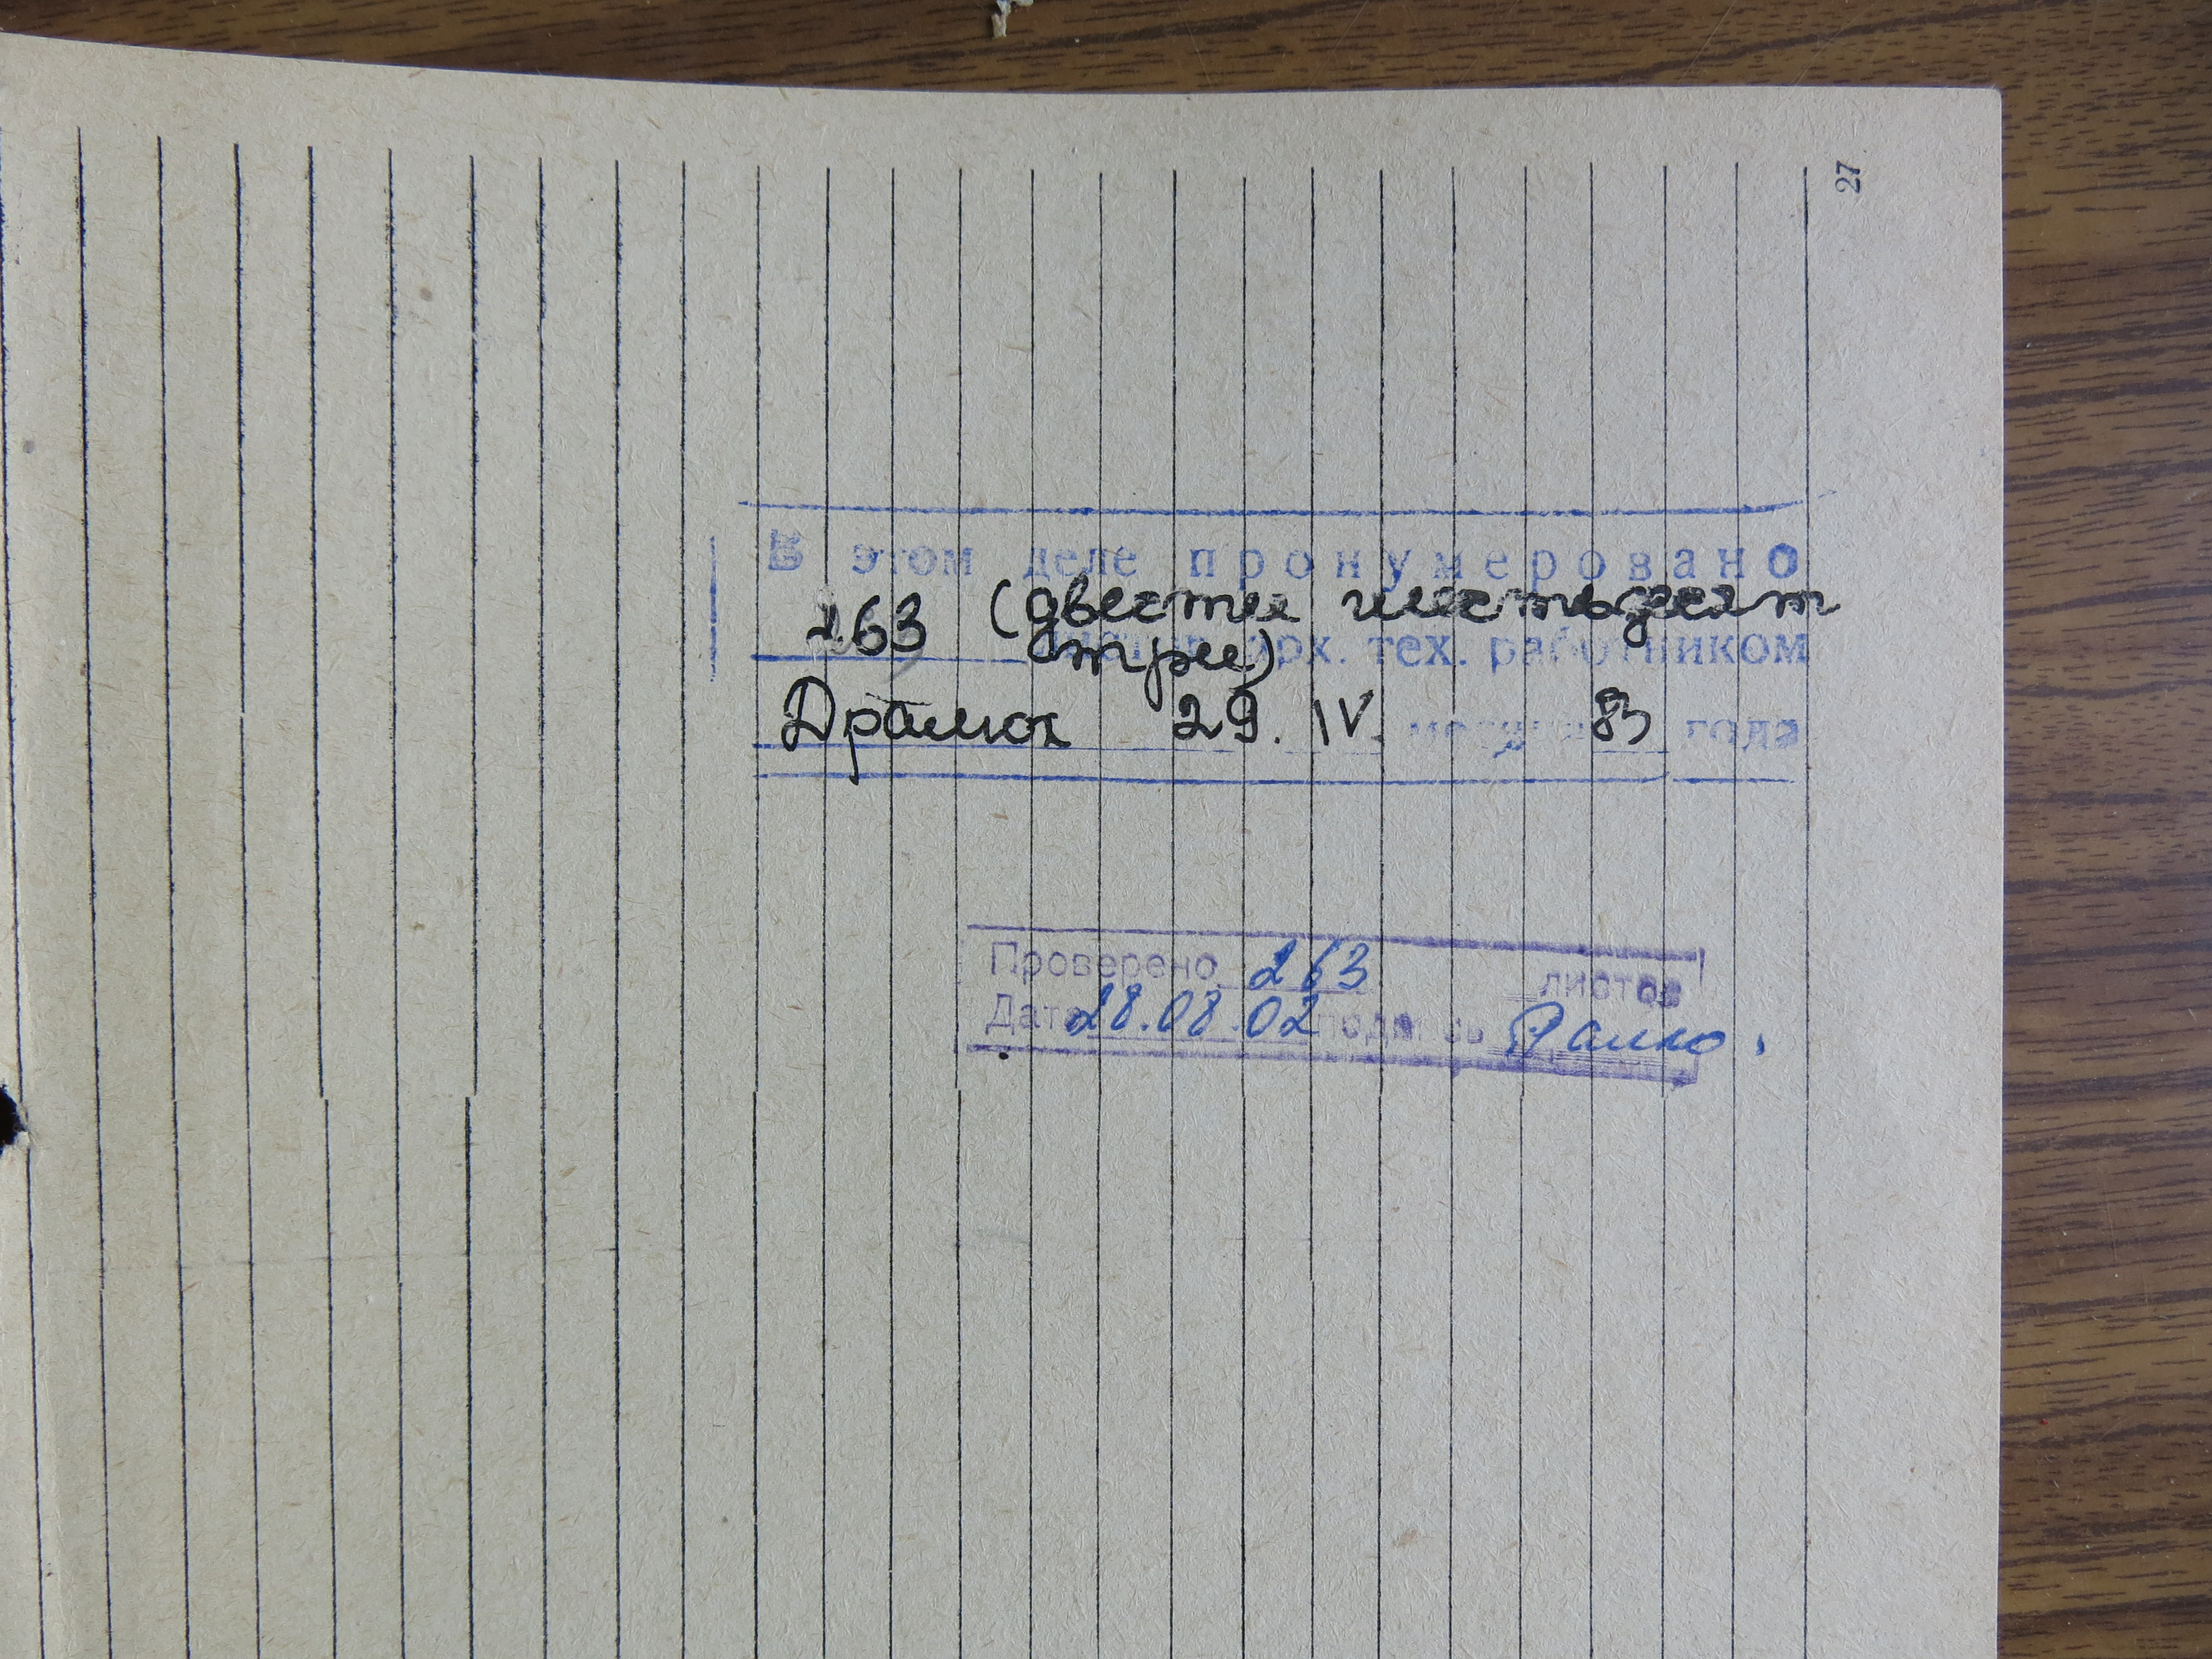 27
В этом деле пронумеровано
263 (двести шестьдесят
три) арх. тех. работником
29. IV. месяца 83 года
Проверено 263 листов
Дата 28.08.02 подпись